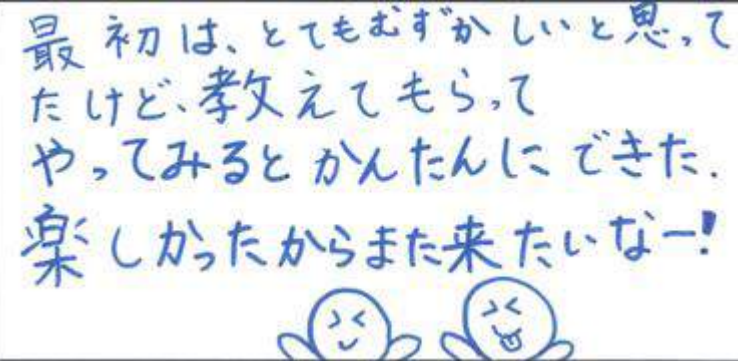 最初は、とてもむずかしいと思って
たけど、教えてもらって
やってみるとかんたんにできた.
楽しかったからまた来たいなー!